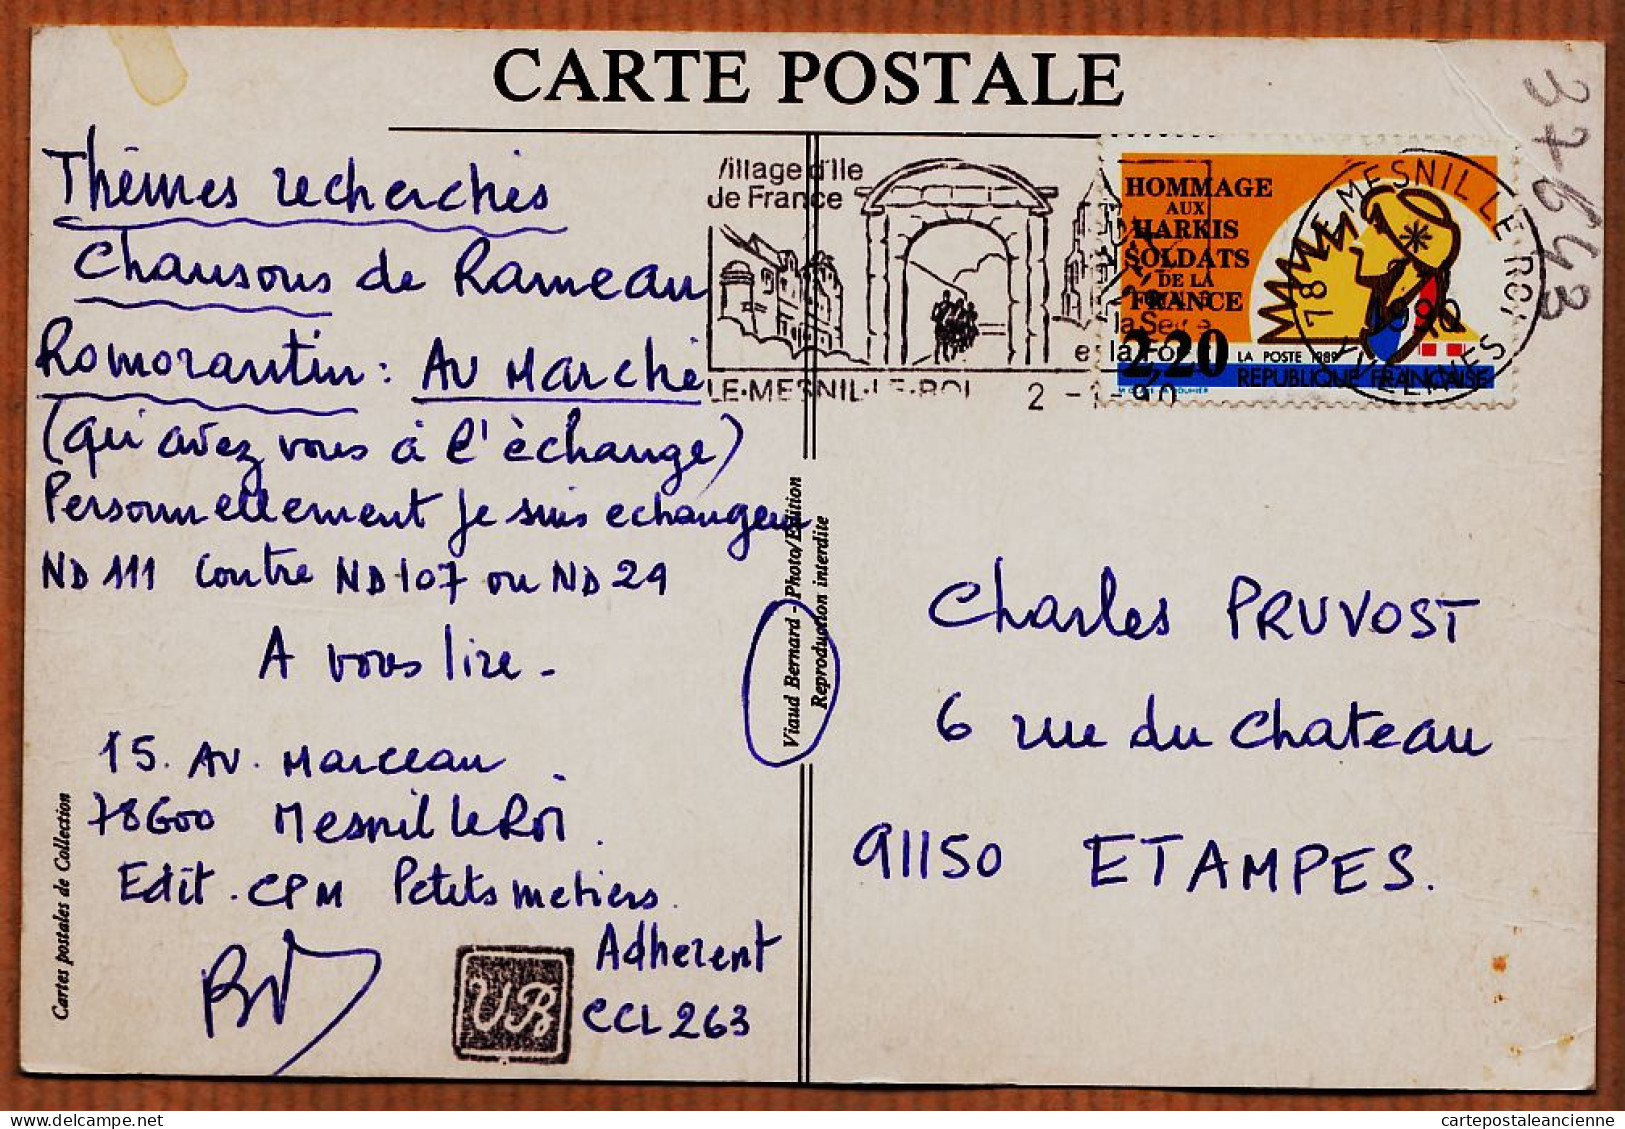 CARTE POSTALE
Thèmes recherchés
Chansons de Rameau
Romorantin : Au Marché
(qui avez vous à l'èchange)
Personnellement je suis echangeur
ND 111 contre ND 107 ou ND 29
A vous lire -
15. Av. Marceau
78600 Mesnil le Roi.
Edit. CPM Petits metiers.
Adherent
CCL 263
VB
Cartes postales de Collection
Viaud Bernard - Photo/Edition
Reproduction interdite
Village d'Ile
de France
la Seine
et la Fo
LE-MESNIL-LE-ROI 2 - 1 - 90
HOMMAGE
AUX
HARKIS
SOLDATS
DE LA
FRANCE
2,20
LA POSTE 1989
REPUBLIQUE FRANÇAISE
78 LE MESNIL LE ROI
YVELINES
1990
37643
Charles PRUVOST
6 rue du Chateau
91150 ETAMPES.
cartepostaleancienne